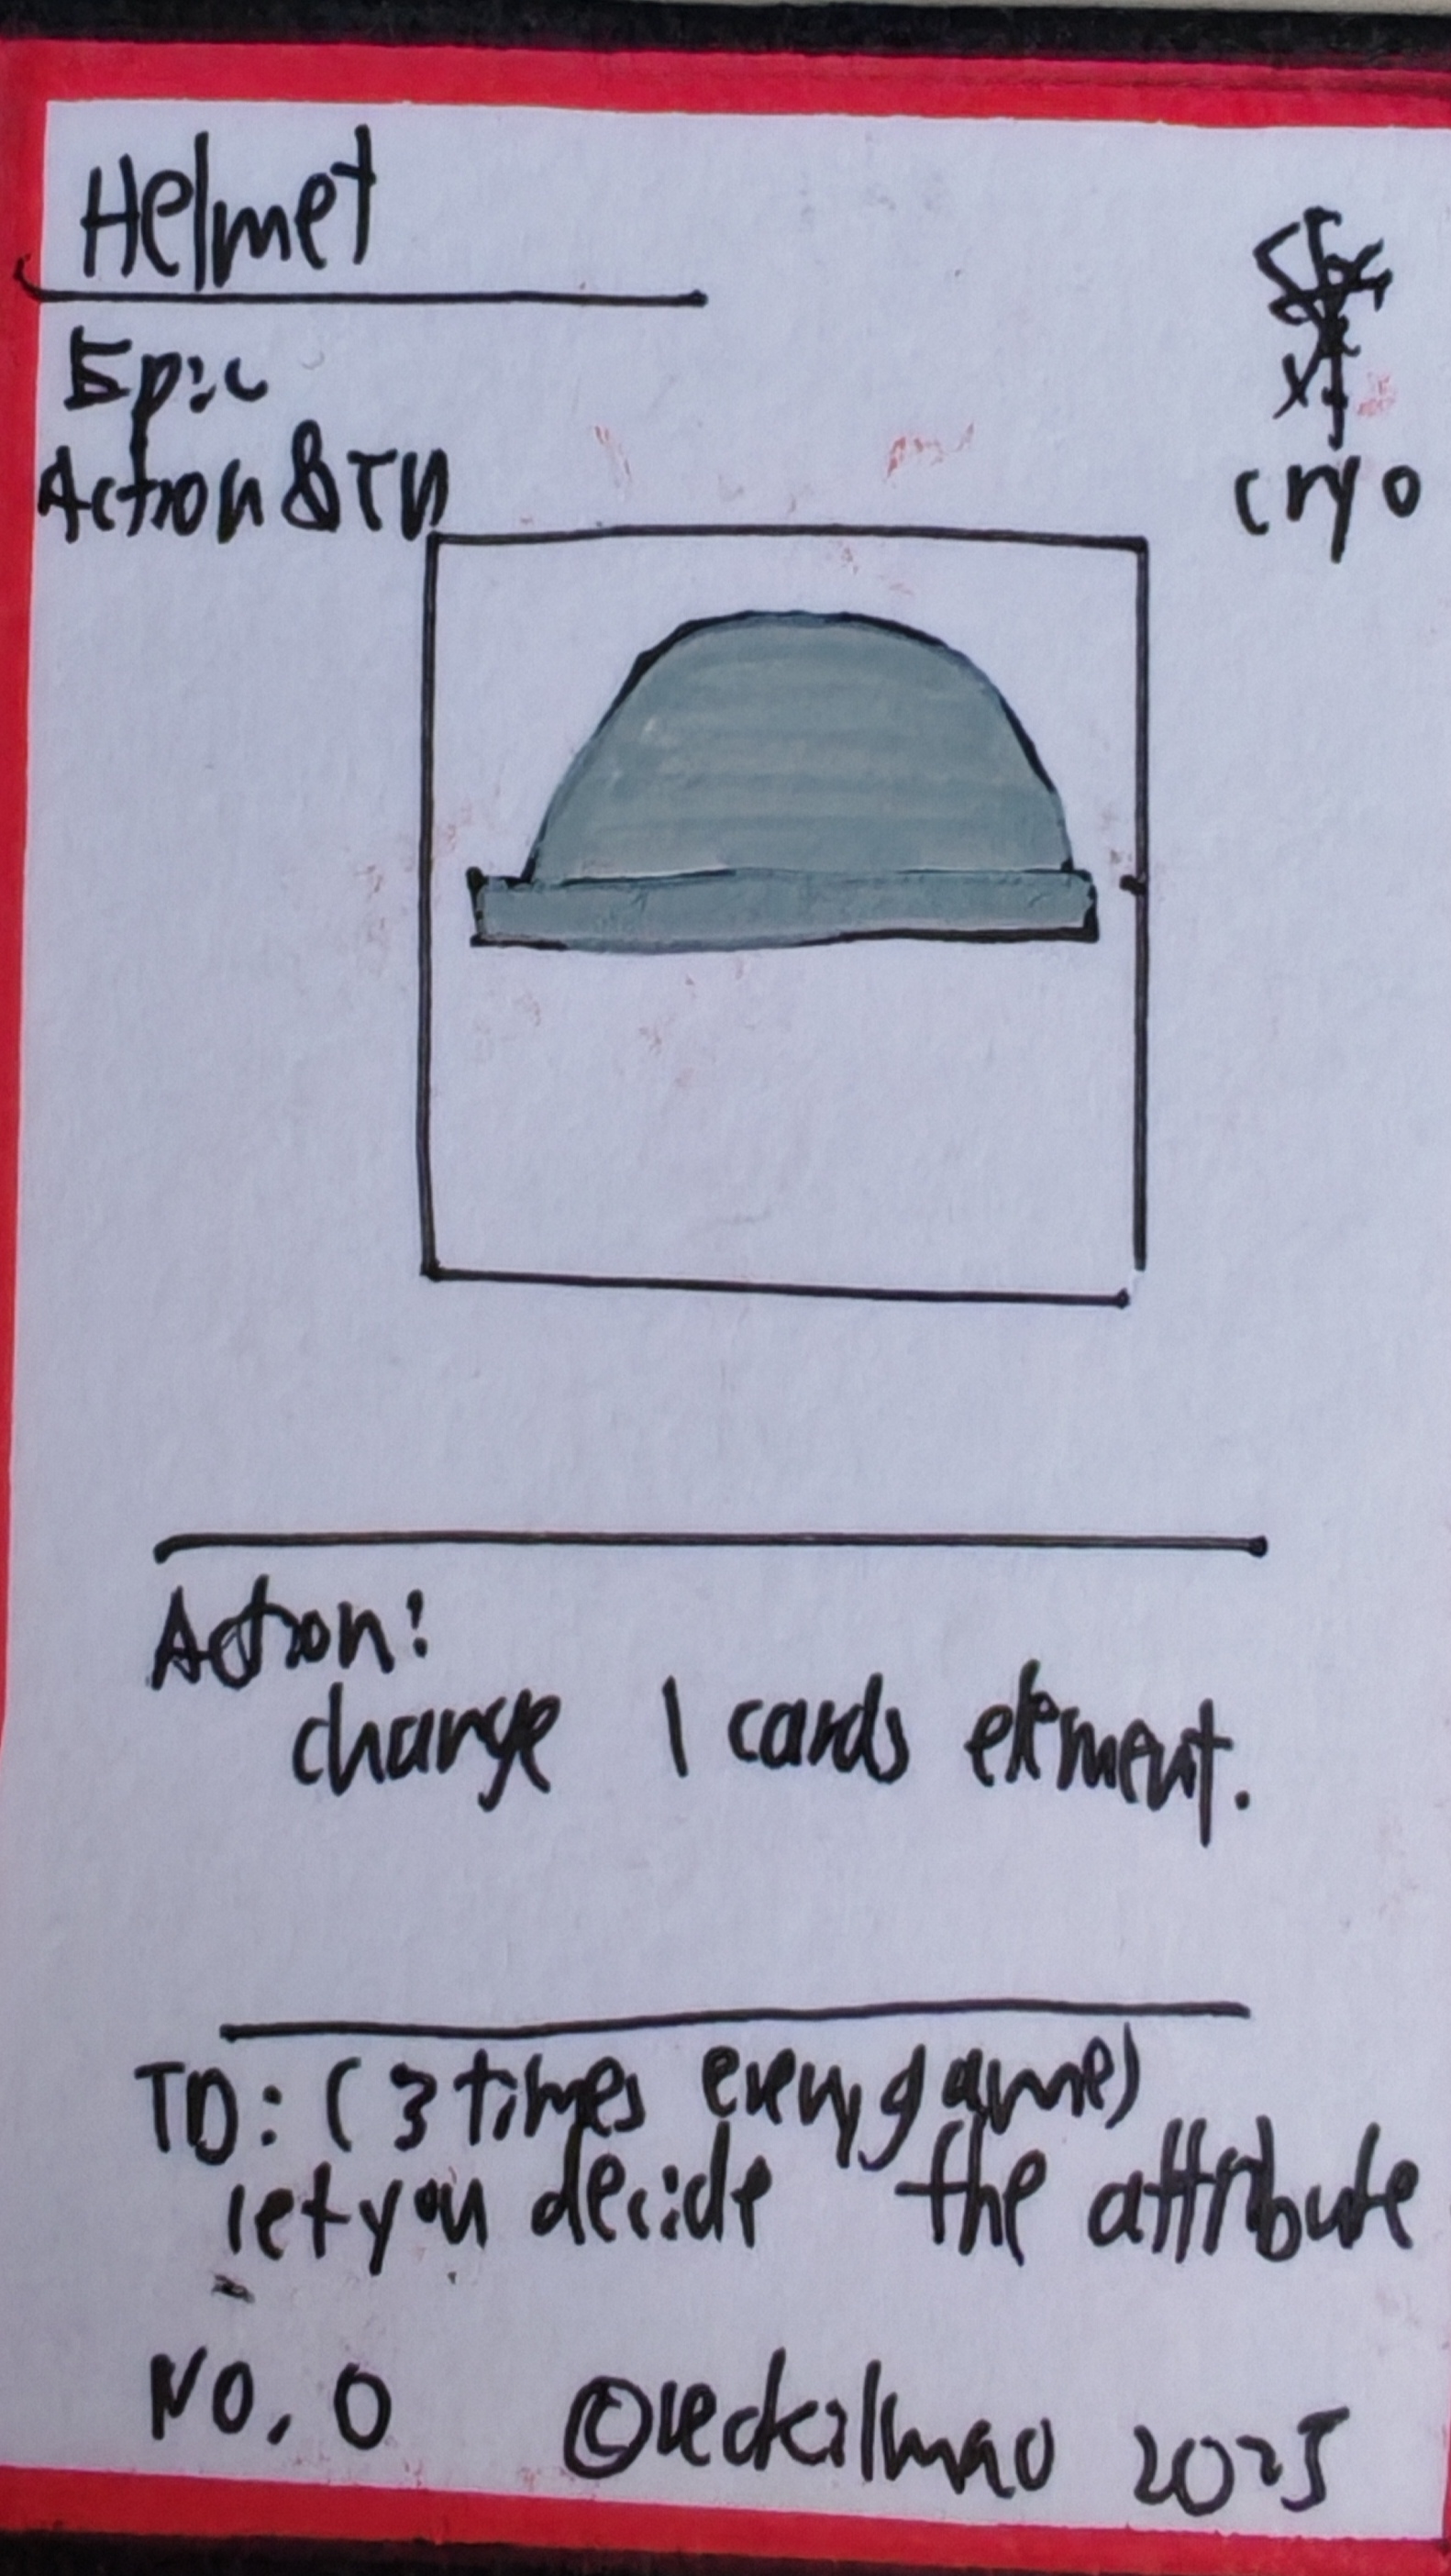 Helmet
Epic
Action & TD
cryo
Action:
change 1 cards element.
TD: (3 times every game)
let you decide the attribute
NO. 0 © 2025